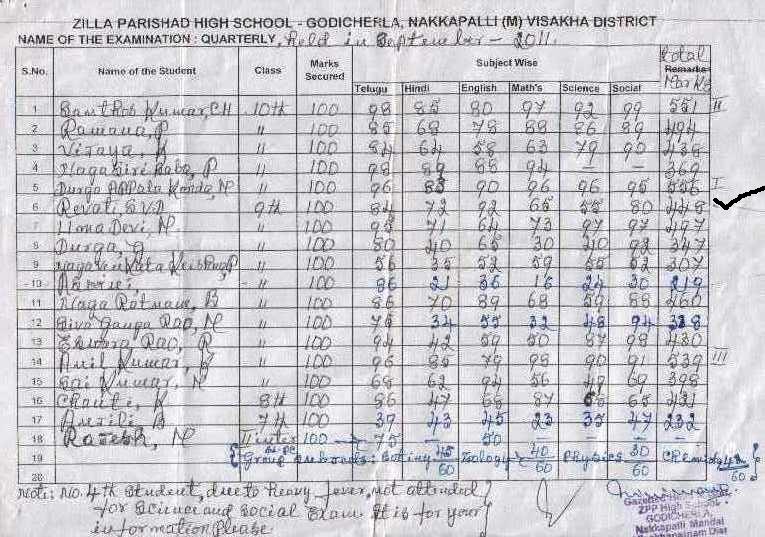 ZILLA PARISHAD HIGH SCHOOL - GODICHERLA, NAKKAPALLI (M) VISAKHA DISTRICT
NAME OF THE EXAMINATION : QUARTERLY, held in September - 2011.
S.No. Name of the Student Class Marks Secured Subject Wise Total Remarks Marks
Telugu Hindi English Math's Science Social
1 Santhosh Kumar, CH 10th 100 98 85 80 97 92 99 551 II
2 Ramana, P " 100 85 68 78 88 86 89 494
3 Vijaya, K " 100 84 64 58 63 79 90 438
4 Nagagiri Babu, P " 100 98 89 88 94 - - 369
5 Durga Appala Konda, N " 100 96 83 90 96 96 95 556 I
6 Revati S.V.D 9th 100 84 72 92 65 55 80 448
7 Uma Devi, N. " 100 95 71 64 73 97 97 497
8 Durga, G " 100 80 40 65 30 40 92 347
9 P " 100 56 35 52 59 55 52 307
10 " 100 86 21 36 16 24 30 219
11 Naga Ratnam, B " 100 86 70 89 68 59 88 460
12 Siva Ganga Rao, N " 100 75 34 55 32 48 94 338
13 Eswara Rao, R " 100 94 42 59 50 87 98 430
14 Anil Kumar, " 100 96 85 79 98 90 91 539 III
15 Sai Kumar, N " 100 68 62 94 56 49 69 398
16 K 8th 100 86 47 66 87 65 431
17 B 7th 100 39 43 45 23 35 47 232
18 Rajesh, N II inter 100 → 75 - 50 - - -
19 { Group subjects: Botiny 45/60 Zoology 40/60 Physics 30/60 Chemisty /60 }
20
Note: No. 4th Student, due to heavy fever, not attended
for Science and Social Exam. It is for your
information please
ZPP High School
GODICHERLA,
Nakkapalli Mandal
Visakhapatnam Dist